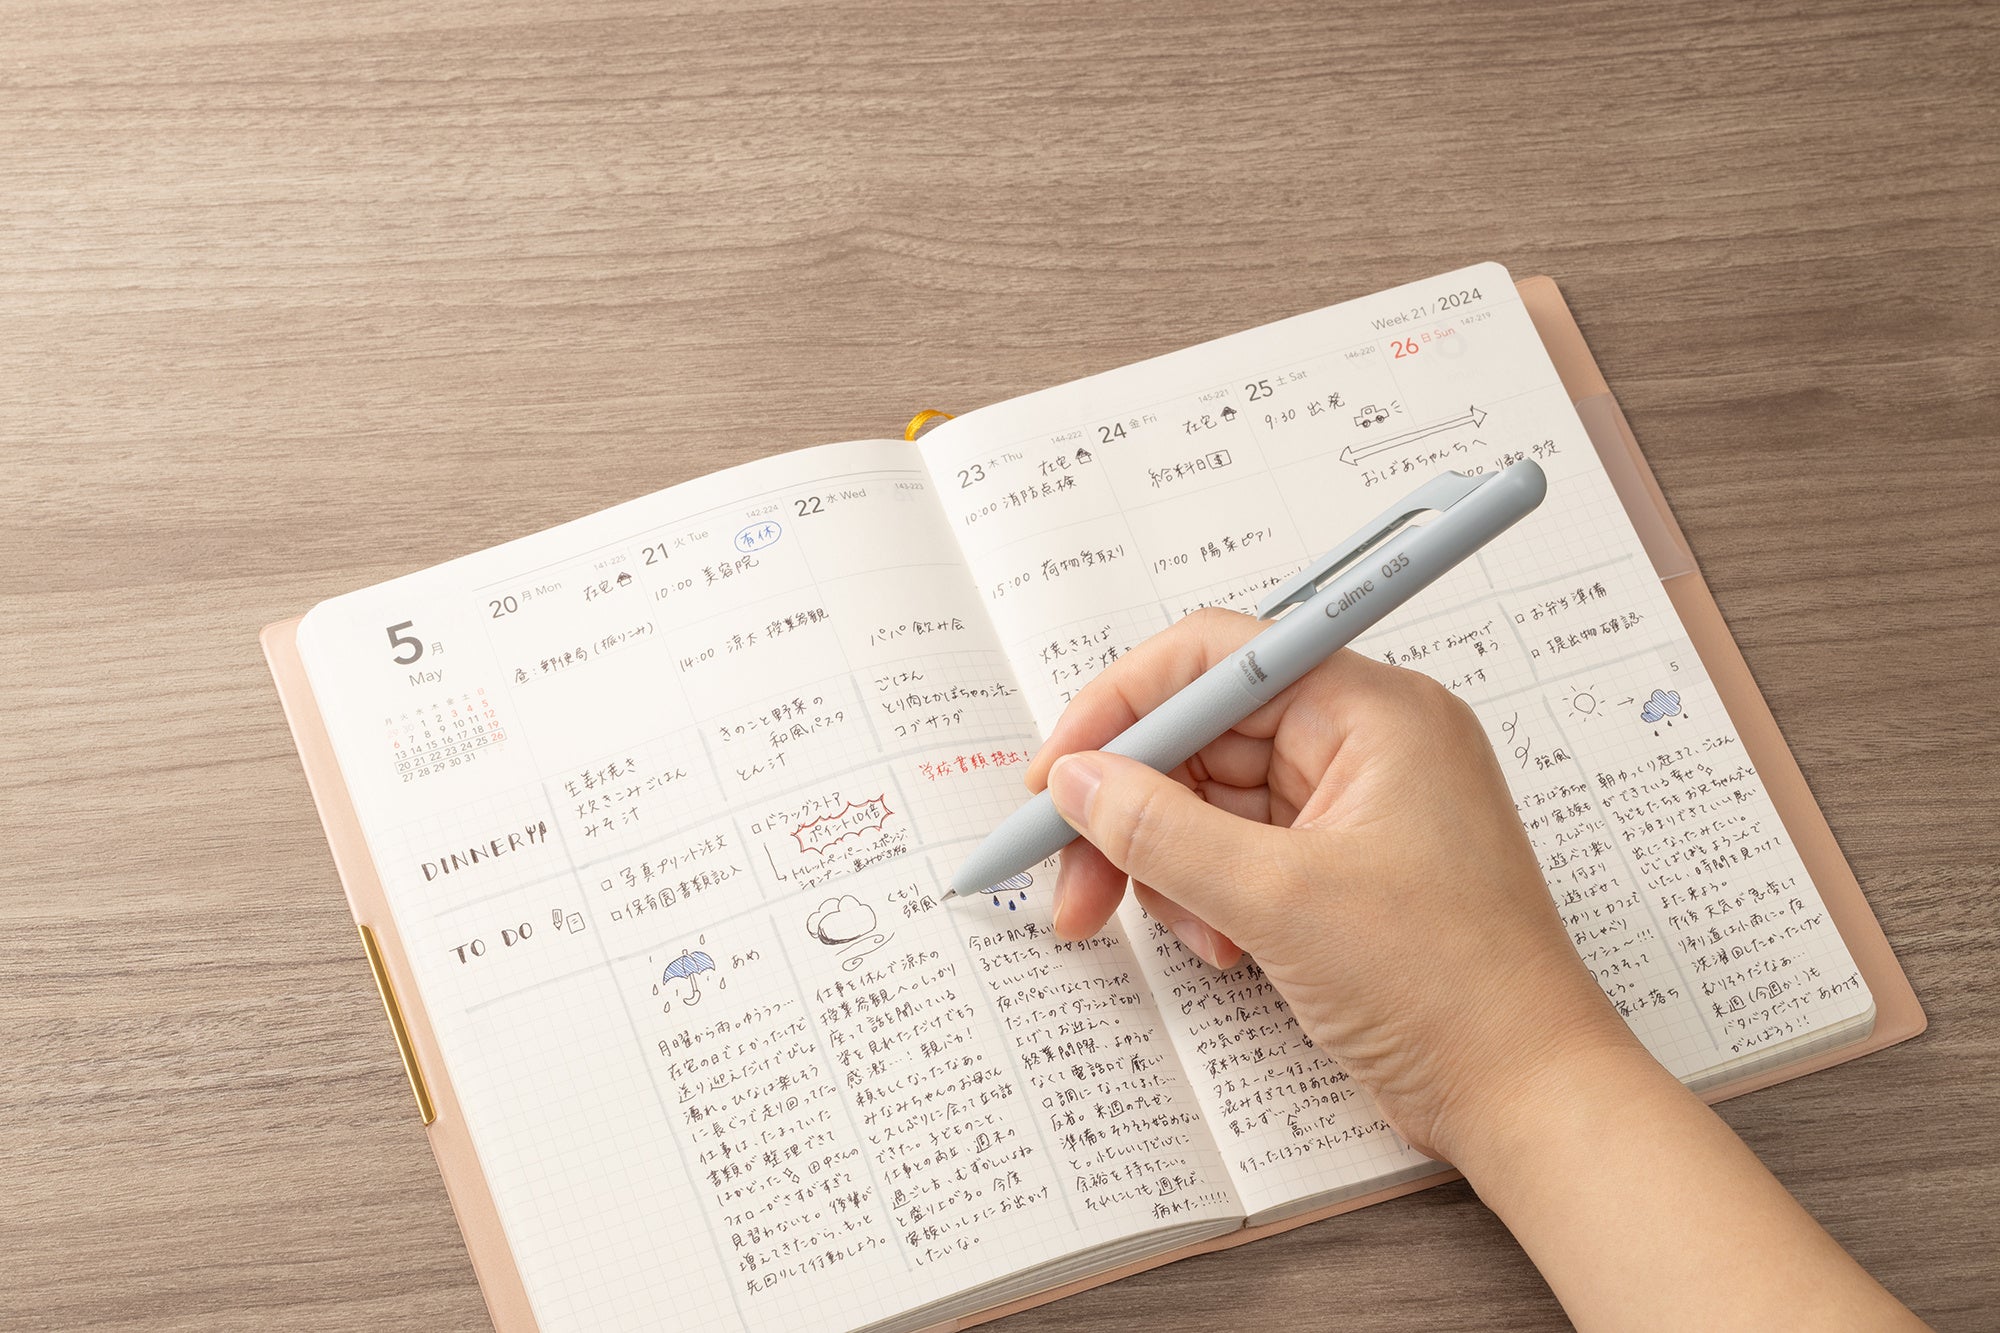 5月
May
月 火 水 木 金 土 日
1 2 3 4 5
6 7 8 9 10 11 12
13 14 15 16 17 18 19
20 21 22 23 24 25 26
27 28 29 30 31
DINNER
TO DO
20 月 Mon
141-225
在宅
昼:郵便局(振りこみ)
生姜焼き
炊きこみごはん
みそ汁
□ 写真プリント注文
□ 保育園書類記入
あめ
月曜から雨。ゆううつ…
在宅の日で上かったけど
送り迎えだけでびしょ
濡れ。ひなは楽しそう
に長ぐつで走り回ってた。
仕事は、たまっていた
書類が整理できて
はかどった 田中さんの
フォローがさすがすぎて
見習わないと。後輩が
増えてきたから、もっと
先回りして行動しよう。
21 火 Tue
142-224
有休
10:00 美容院
14:00 涼太 授業参観
きのこと野菜の
和風パスタ
とん汁
□ドラッグストア
ポイント10倍
トイレットペーパー、スポンジ、
シャンプー、歯みがき粉
くもり
強風
仕事を休んで涼太の
授業参観へ。しっかり
座って話を聞いている
姿を見れただけでもう
感激…!親バカ!
頼もしくなったなあ。
みなみちゃんのお母さん
と久しぶりに会って立ち話
できた。子どものこと、
仕事との両立、週末の
過ごし方、むずかしいよね
と盛り上がる。今度
家族いっしょにお出かけ
したいな。
22 水 Wed
143-223
パパ 飲み会
ごはん
とり肉とかぼちゃのシチュー
コブサラダ
学校書類提出!
今日は肌寒い
子どもたち、カゼ引かない
といいけど…
夜パパがいなくてワンオペ
だったのでダッシュで切り
上げてお迎えへ。
終業間際、よゆうが
なくて電話口で厳しい
口調になってしまった…
反省。来週のプレゼン
準備もそろそろ始めない
と。忙しいけど心に
余裕を持ちたい。
それにしても週半ば、
疲れた!!!!!
23 木 Thu
144-222
在宅
10:00 消防点検
15:00 荷物受取り
焼きそば
たまご焼き
24 金 Fri
145-221
在宅
給料日
17:00 陽菜ピアノ
たまにはいいよね…!
からランチは駅
ピザをテイクアウ
しいもの食べて午
やる気が出た!プレ
資料も進んで一安
夕方スーパー行ったら
混みすぎてて目あてのもの
買えず…ふつうの日に
高いけど
行ったほうがストレスないな
25 土 Sat
146-220
9:30 出発
おばあちゃんちへ
道の駅でおみやげ
買う
強風
26 日 Sun
147-219
帰宅予定
□ お弁当準備
□ 提出物確認
朝ゆっくり起きて、ごはん
ができている幸せ
子どもたちもお兄ちゃんたちと
お泊まりできていい思い
出になったみたい。
じじばばもよろこんで
いたし、時間を見つけて
また来よう。
午後天気が急変して
帰り道は小雨に。夜
洗濯回したかったけど
むりそうだなあ…
来週(今週か!)も
バタバタだけどあわてず
がんばろう!!
Week 21 / 2024
Calme 035
Pentel